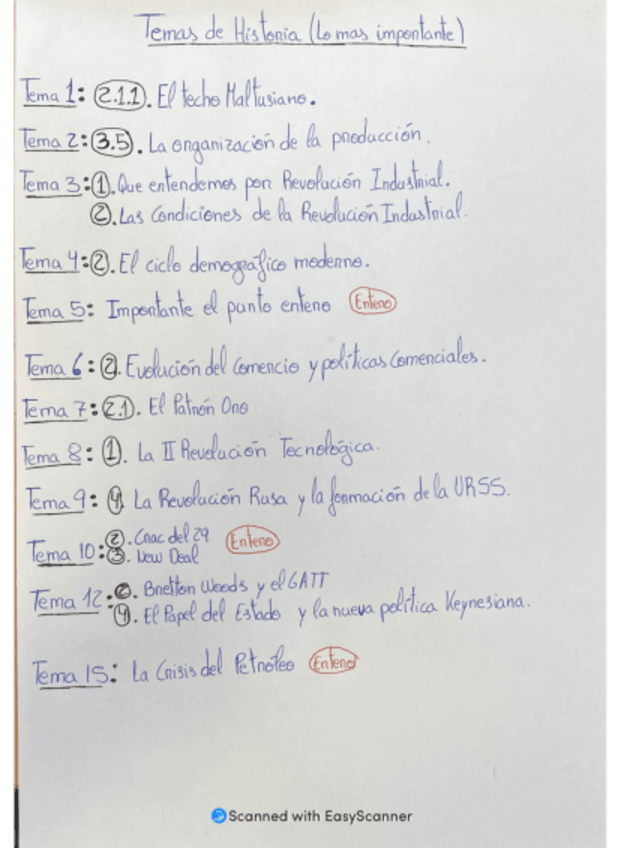 Temas de Historia (Lo mas importante)
Tema 1: 2.1.1. El techo Maltusiano.
Tema 2: 3.5. La organización de la producción.
Tema 3: 1. Que entendemos por Revolución Industrial.
2. Las Condiciones de la Revolución Industrial.
Tema 4: 2. El ciclo demográfico moderno.
Tema 5: Importante el punto entero Entero
Tema 6: 2. Evolución del Comercio y políticas Comerciales.
Tema 7: 2.1. El Patrón Oro
Tema 8: 1. La II Revolución Tecnológica.
Tema 9: 4. La Revolución Rusa y la formación de la URSS.
Tema 10: 2. Crac del 29 Entero
3. New Deal
Tema 12: 2. Bretton Woods y el GATT
4. El Papel del Estado y la nueva política Keynesiana.
Tema 15: La Crisis del Petróleo Entero
Scanned with EasyScanner